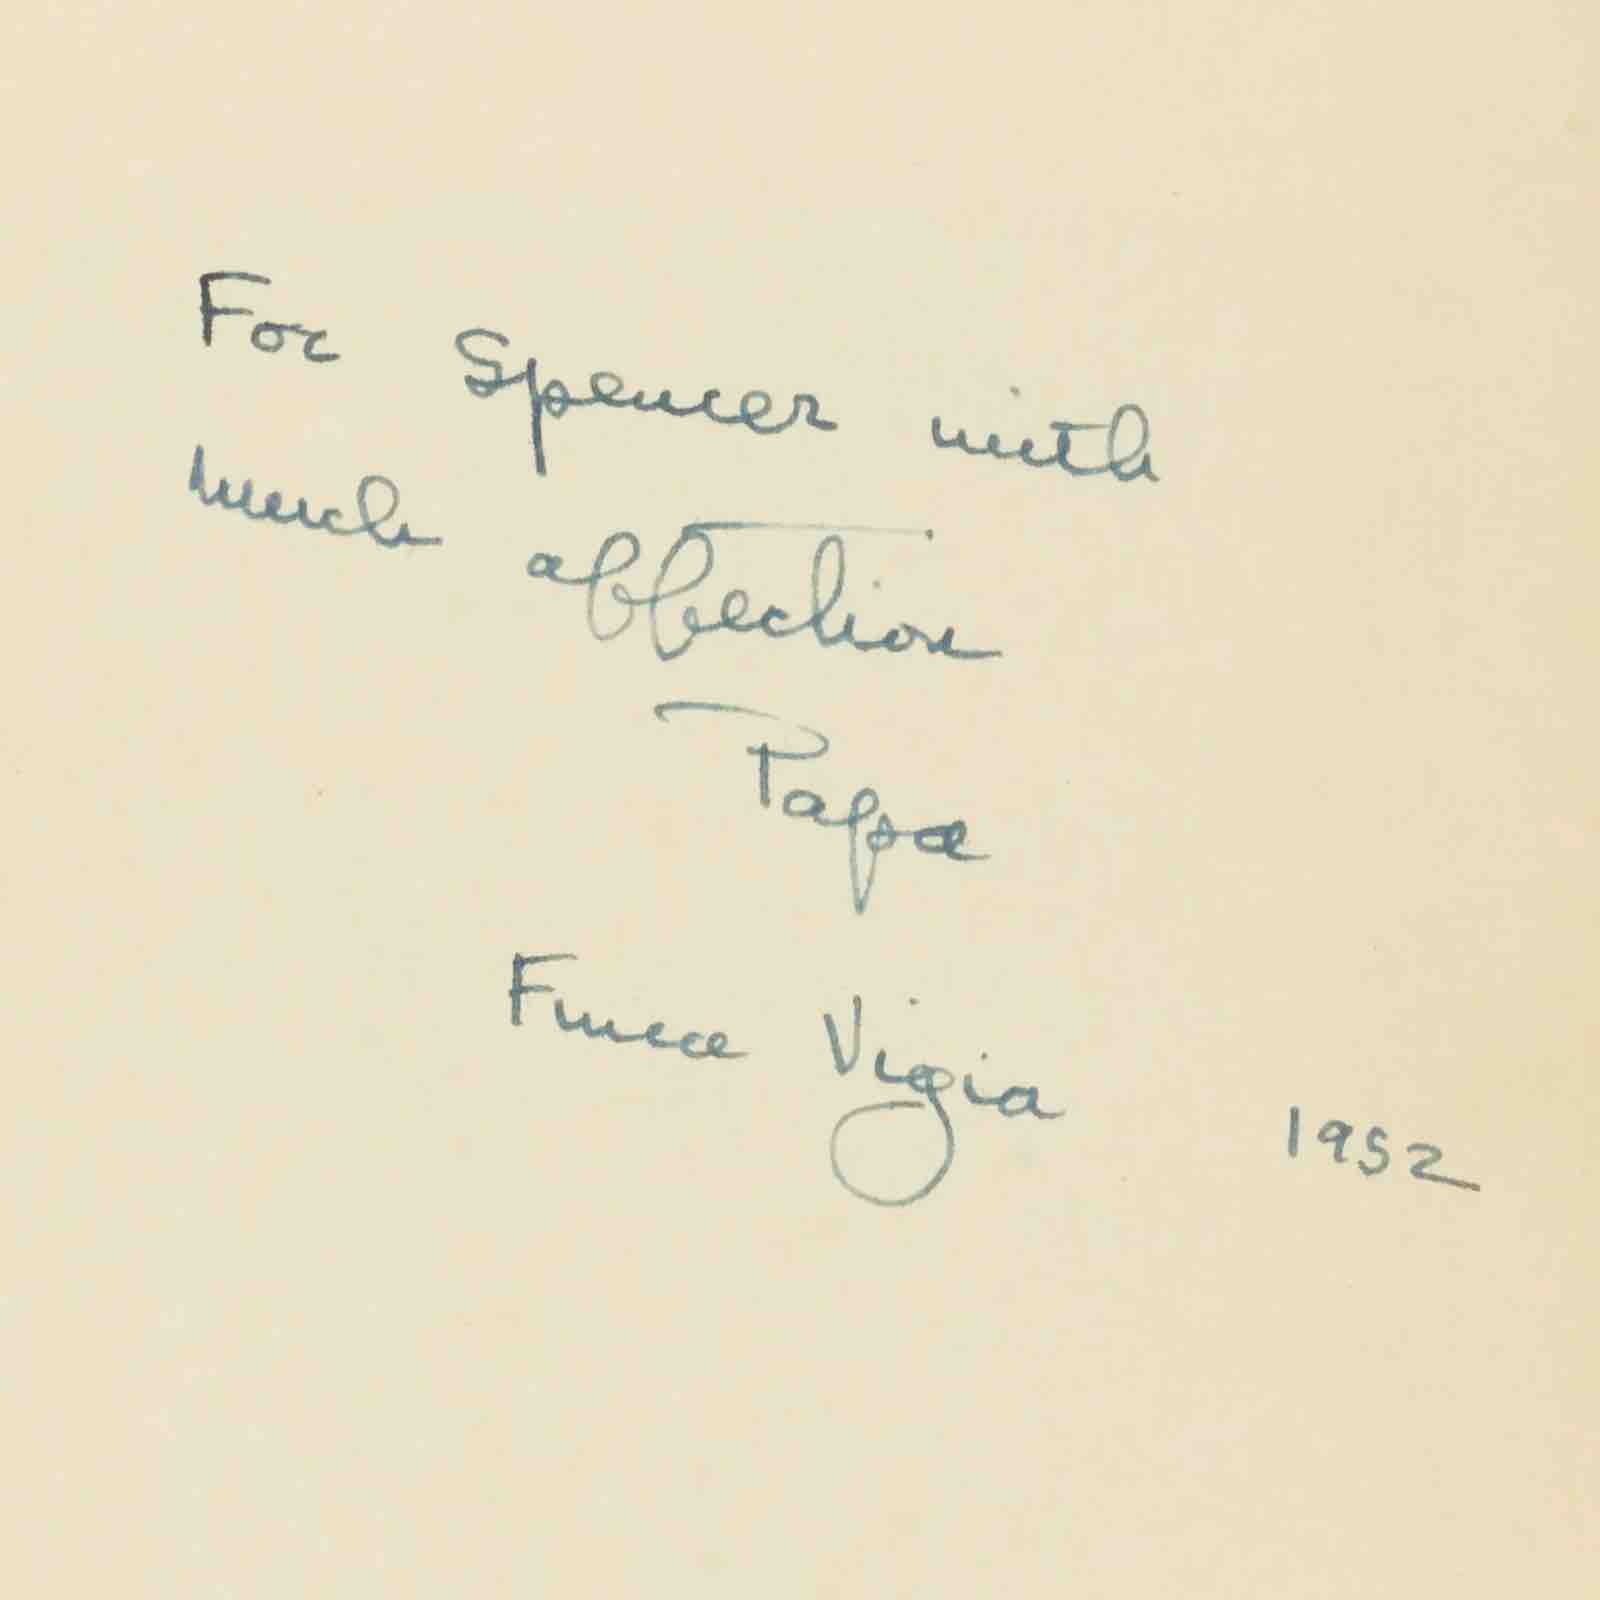 For Spencer with
much affection
Papa
Finca Vigia
1952